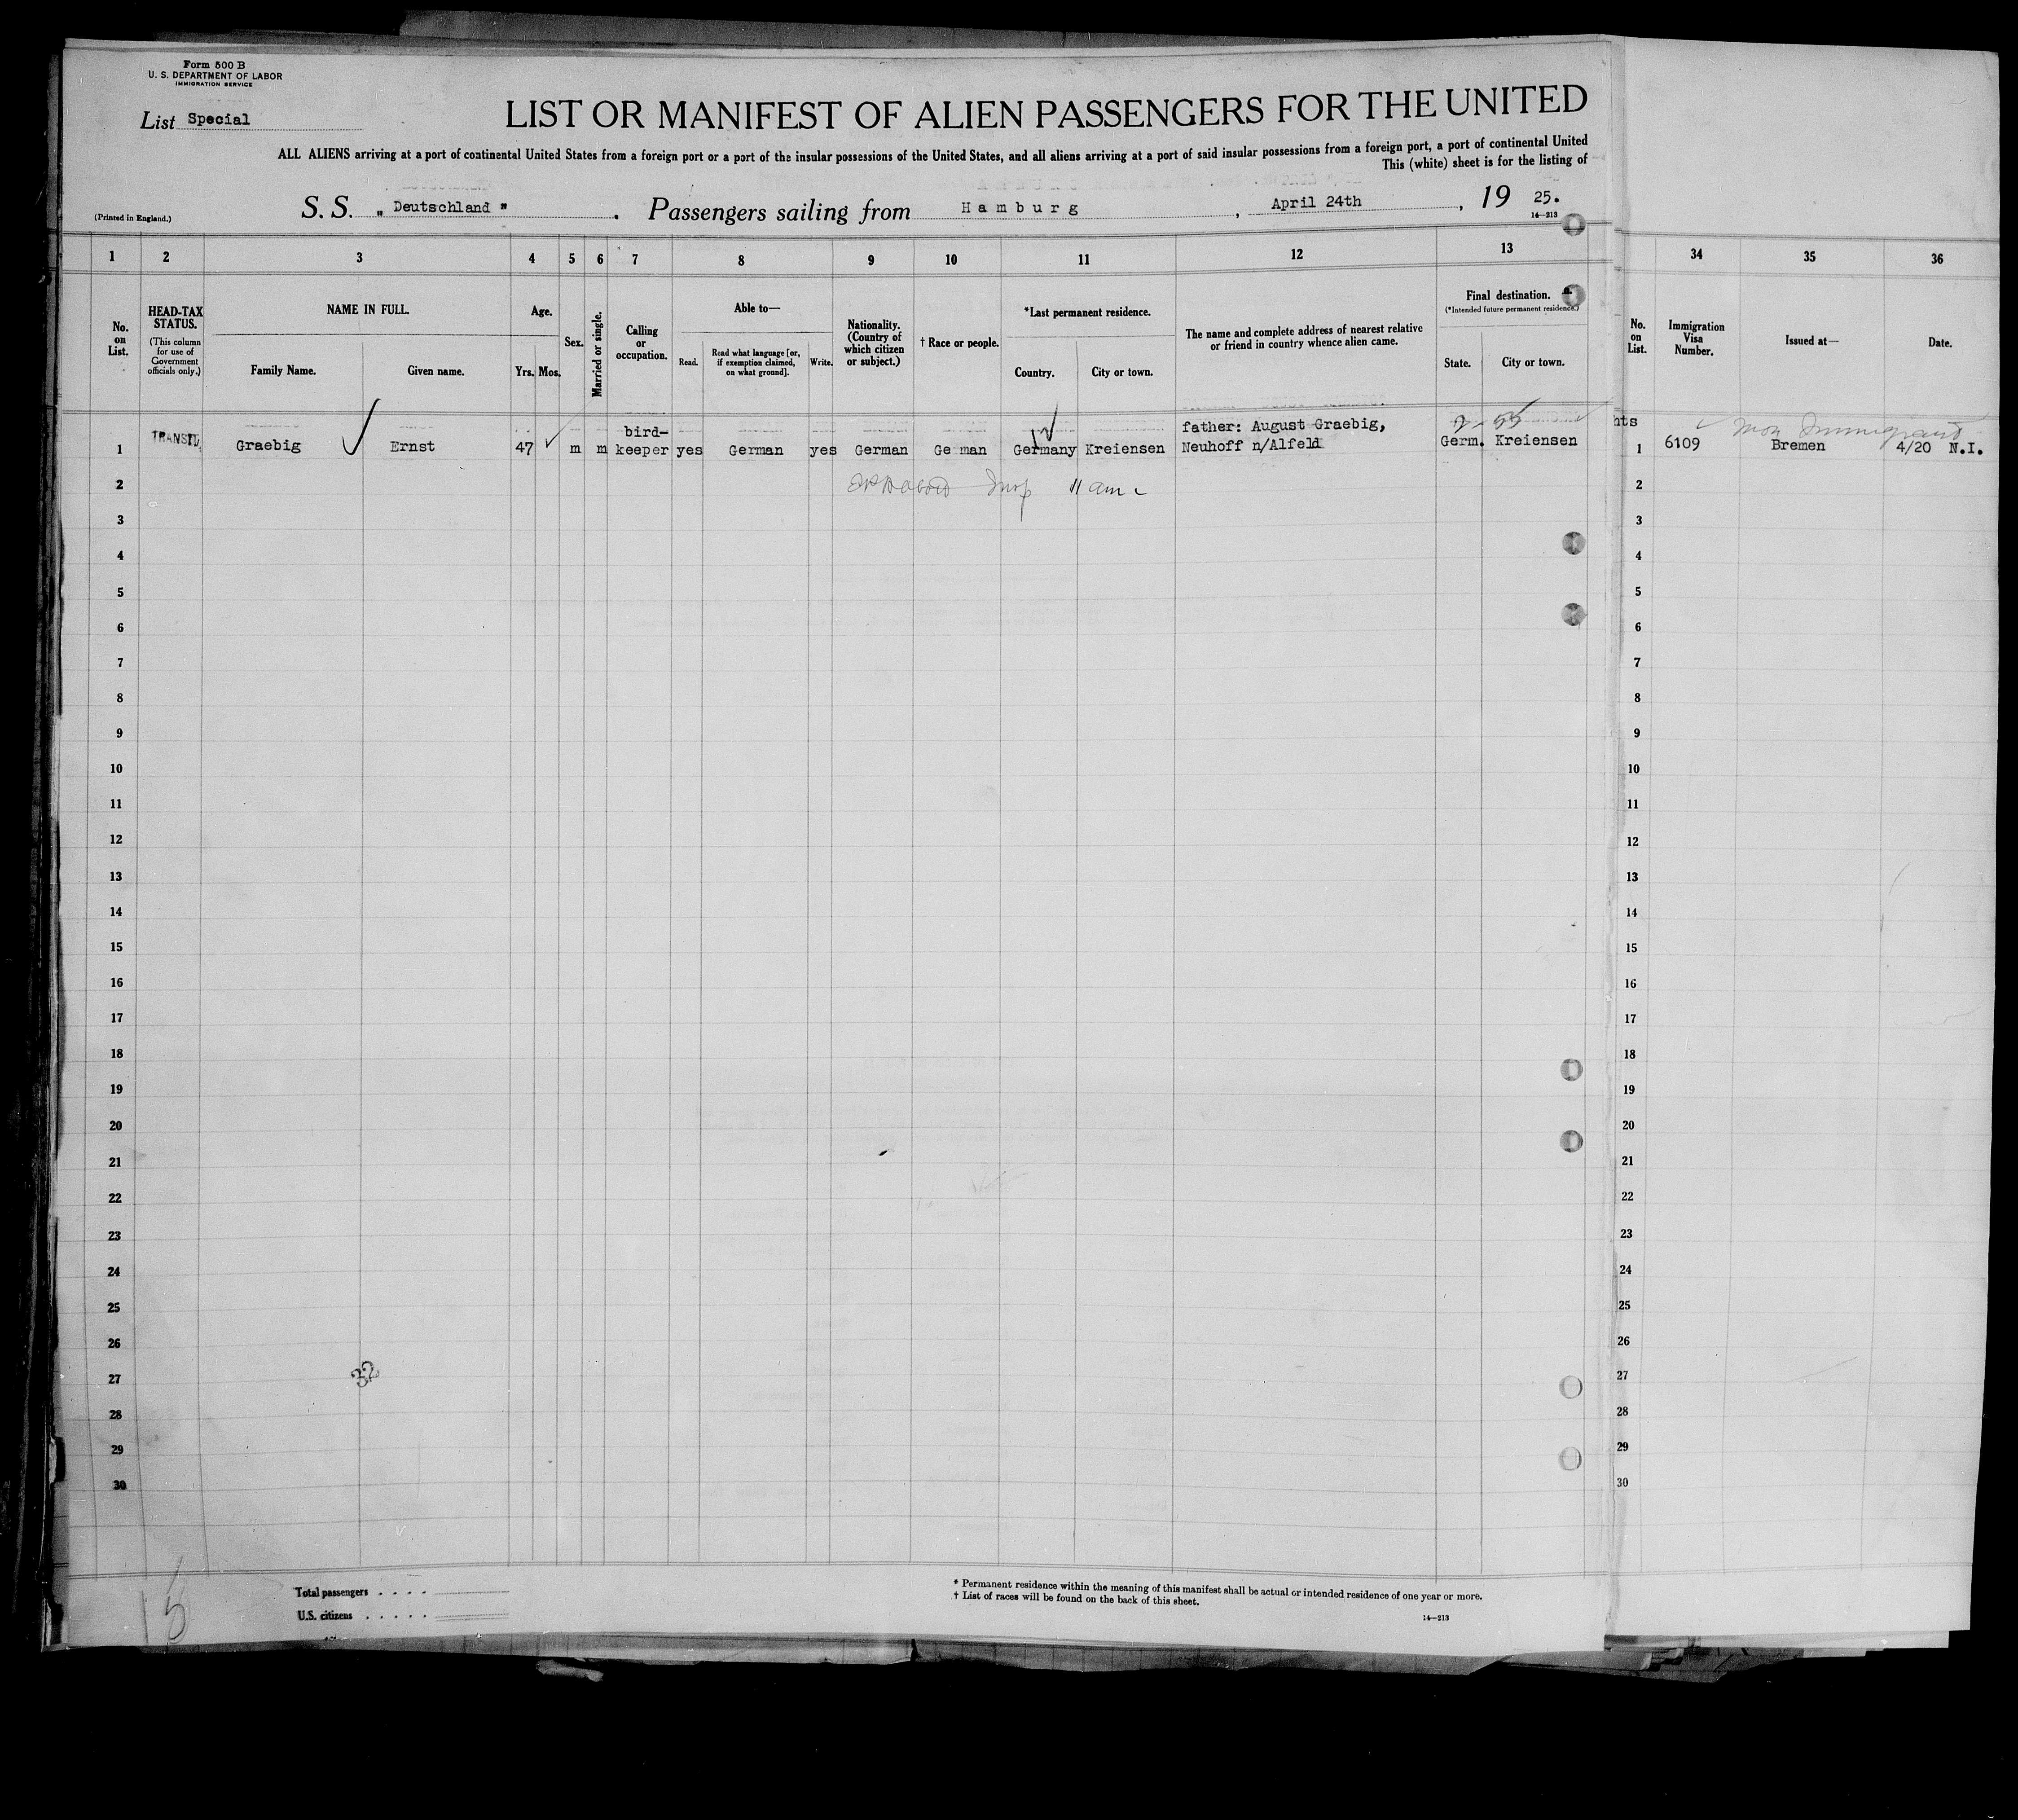 Form 500 B
U. S. DEPARTMENT OF LABOR
IMMIGRATION SERVICE
List Special
LIST OR MANIFEST OF ALIEN PASSENGERS FOR THE UNITED
ALL ALIENS arriving at a port of continental United States from a foreign port or a port of the insular possessions of the United States, and all aliens arriving at a port of said insular possessions from a foreign port, a port of continental United
This (white) sheet is for the listing of
(Printed in England.)
S. S. „ Deutschland " . Passengers sailing from Hamburg , April 24th , 19 25.
14—213
1 2 3 4 5 6 7 8 9 10 11 12 13 34 35 36
No. on List.
HEAD-TAX STATUS.
(This column for use of Government officials only.)
NAME IN FULL.
Family Name. Given name.
Age.
Yrs. Mos.
Sex.
Married or single.
Calling or occupation.
Able to—
Read. Read what language [or, if exemption claimed, on what ground]. Write.
Nationality. (Country of which citizen or subject.)
† Race or people.
*Last permanent residence.
Country. City or town.
The name and complete address of nearest relative or friend in country whence alien came.
Final destination.
(*Intended future permanent residence.)
State. City or town.
No. on List.
Immigration Visa Number.
Issued at—
Date.
hts
1 TRANSIT Graebig Ernst 47 m m bird-keeper yes German yes German Ge man Germany Kreiensen father: August Graebig, Neuhoff n/Alfeld Germ. Kreiensen 1 6109 Bremen 4/20 N.I.
Non Immigrant
2 11 am 2
3 3
4 4
5 5
6 6
7 7
8 8
9 9
10 10
11 11
12 12
13 13
14 14
15 15
16 16
17 17
18 18
19 19
20 20
21 21
22 22
23 23
24 24
25 25
26 26
27 32 27
28 28
29 29
30 30
Total passengers . . . .
U.S. citizens . . . . .
* Permanent residence within the meaning of this manifest shall be actual or intended residence of one year or more.
† List of races will be found on the back of this sheet.
14—213